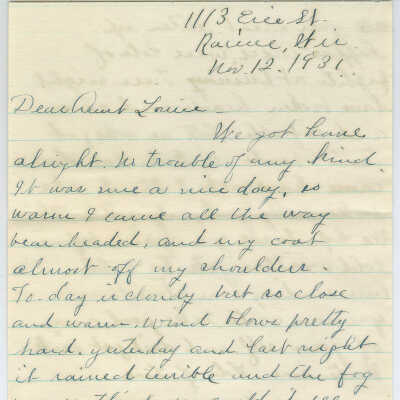 1113 Erie St.
Racine, Wis.
Nov. 12. 1931.
Dear Aunt Louise -
We got home
alright. No trouble of any kind.
It was sure a nice day, so
warm I came all the way
bear headed, and my coat
almost off my shoulders.
To-day is cloudy but so close
and warm. Wind blows pretty
hard, yesterday and last night
it rained terrible and the fog